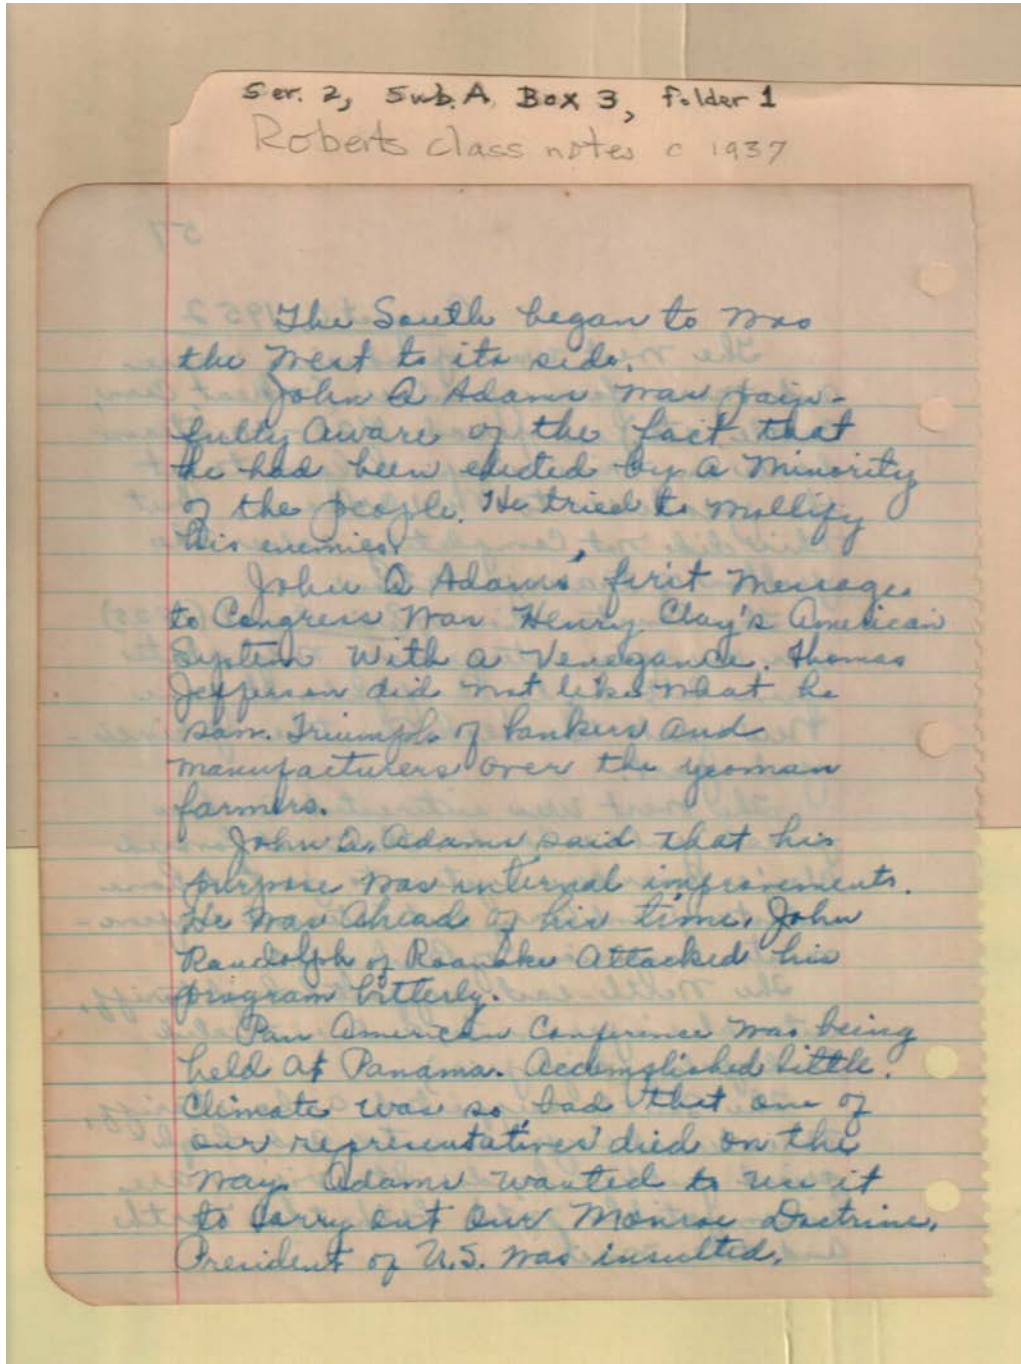 Ser. 2, Sub. A Box 3, Folder 1
Roberts class notes c 1937
57
1952
The South began to woo
the West to its side.
John Q Adams was pain-
fully aware of the fact that
he had been elected by a minority
of the people. He tried to mollify
his enemies.
John Q Adams' first message
to Congress was Henry Clay's American
System with a venegance. Thomas
Jefferson did not like what he
saw. Triumph of bankers and
manufacturers over the yeoman
farmers.
John Q. Adams said that his
purpose was internal improvements.
He was ahead of his time. John
Randolph of Roanoke attacked his
program bitterly.
Pan American Conference was being
held at Panama. Accomplished little.
Climate was so bad that one of
our representatives died on the
way. Adams wanted to use it
to carry out our Monroe Doctrine.
President of U.S. was insulted.